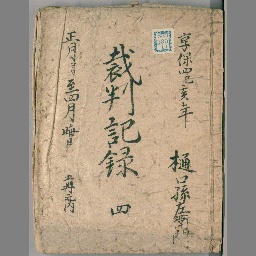 享保四己亥年
裁判記録 四
正月 至四月晦日
樋口孫左衛門